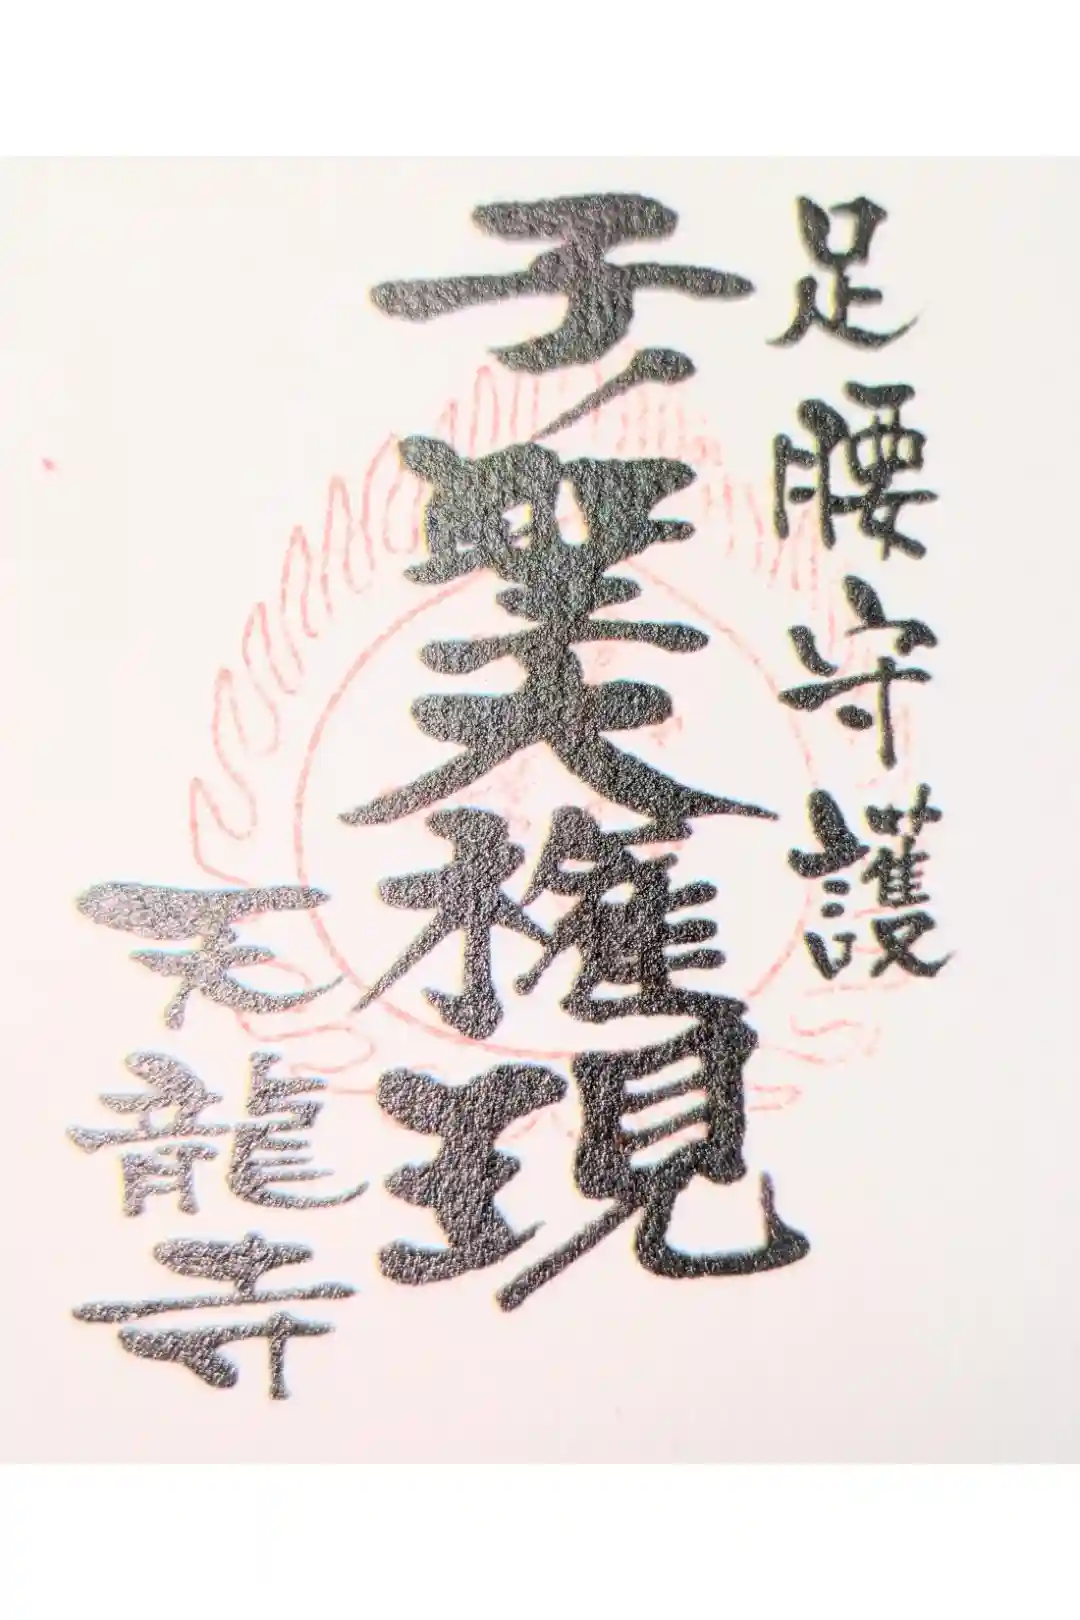 足腰守護
子ノ聖大権現
天龍寺